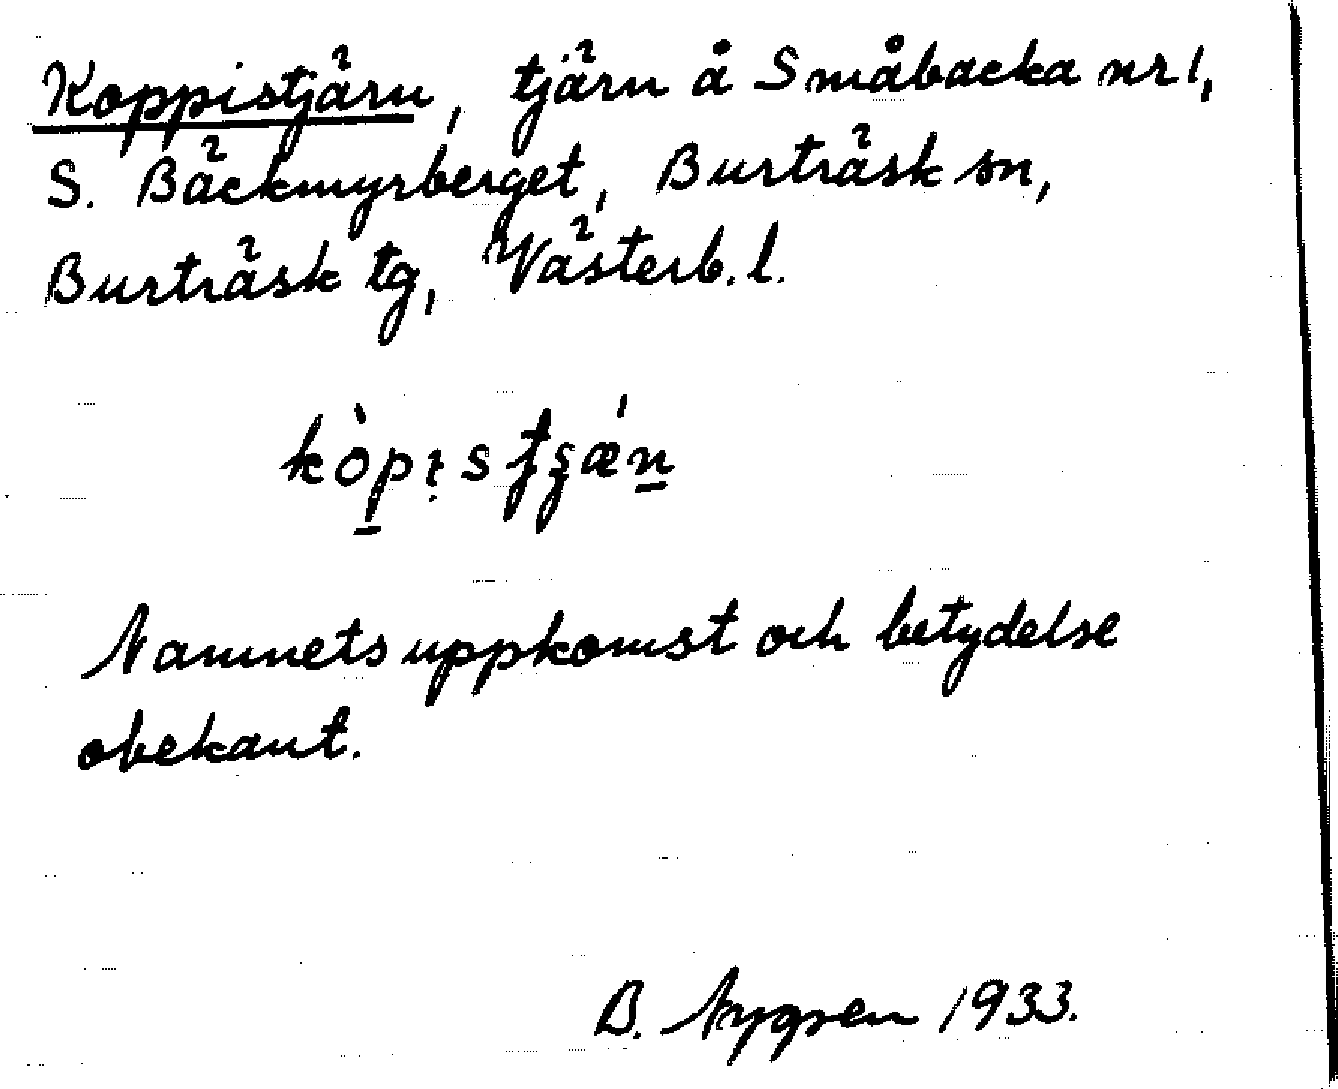 Koppistjärn, tjärn å Småbacka nr 1,
S. Bäckmyrberget, Burträsk sn,
Burträsk tg, Västerb. l.
Namnets uppkomst och betydelse
obekant.
B. Nygren 1933.